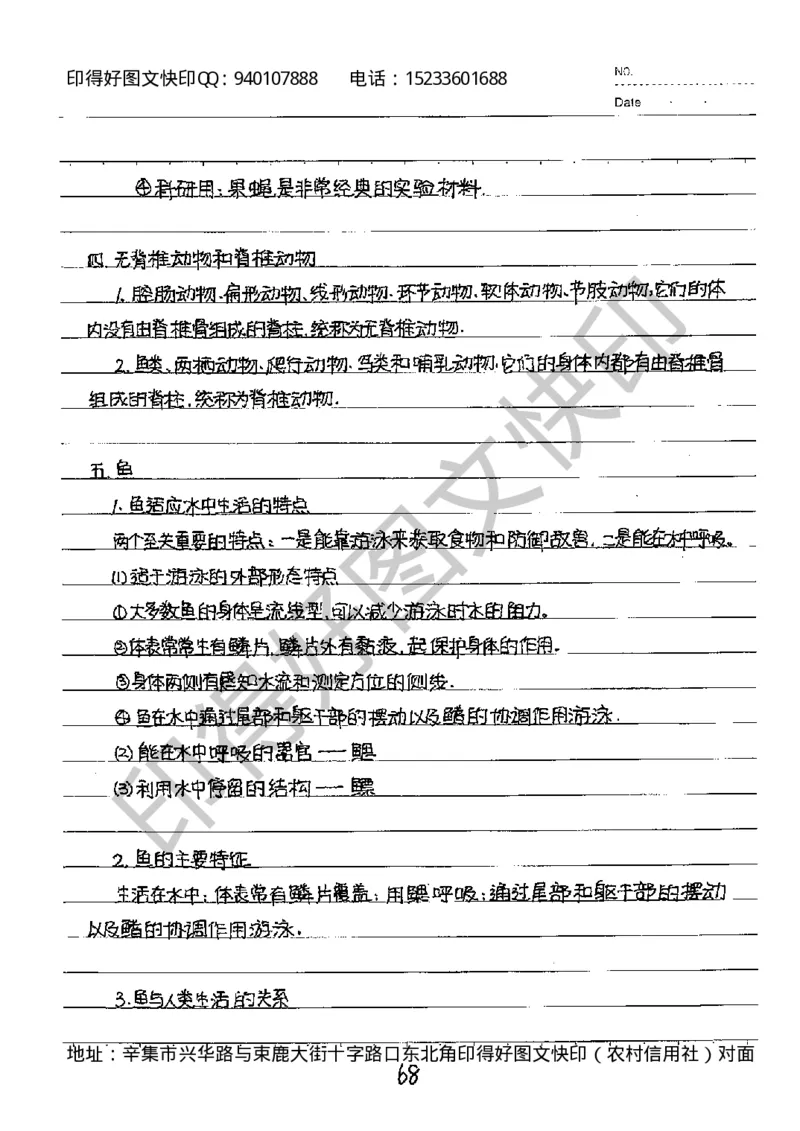 印得好图文快印QQ：940107888 电话：15233601688
NO.
Date
④科研用：果蝇是非常经典的实验材料.
四.无脊椎动物和脊椎动物
1.腔肠动物、扁形动物、线形动物、环节动物、软体动物、节肢动物,它们的体
内没有由脊椎骨组成的脊柱,统称为无脊椎动物.
2.鱼类、两栖动物、爬行动物、鸟类和哺乳动物,它们的身体内都有由脊椎骨
组成的脊柱,统称为脊椎动物.
五.鱼
1.鱼适应水中生活的特点
两个至关重要的特点：一是能靠游泳来获取食物和防御敌害,二是能在水中呼吸。
(1)适于游泳的外部形态特点
①大多数鱼的身体呈流线型,可以减少游泳时水的阻力。
②体表常常生有鳞片,鳞片外有黏液,起保护身体的作用.
③身体两侧有感知水流和测定方位的侧线.
④鱼在水中通过尾部和躯干部的摆动以及鳍的协调作用游泳.
(2)能在水中呼吸的器官——鳃
(3)利用水中停留的结构——鳔
2.鱼的主要特征
生活在水中；体表常有鳞片覆盖；用鳃呼吸；通过尾部和躯干部的摆动
以及鳍的协调作用游泳.
3.鱼与人类生活的关系
地址：辛集市兴华路与束鹿大街十字路口东北角印得好图文快印（农村信用社）对面
68
印得好图文快印